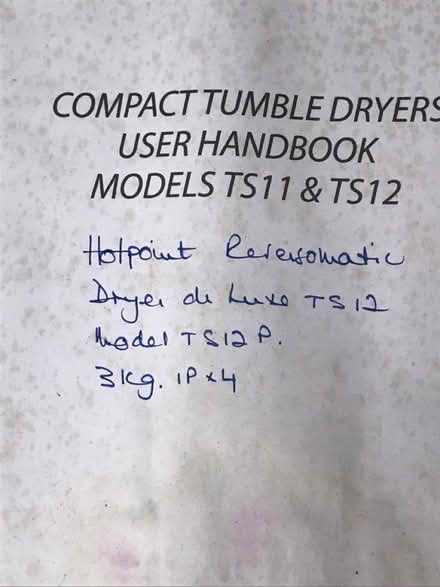 COMPACT TUMBLE DRYERS
USER HANDBOOK
MODELS TS11 & TS12
Hotpoint Reversomatic
Dryer de Luxe TS12
Model TS12P.
3kg. IPx4